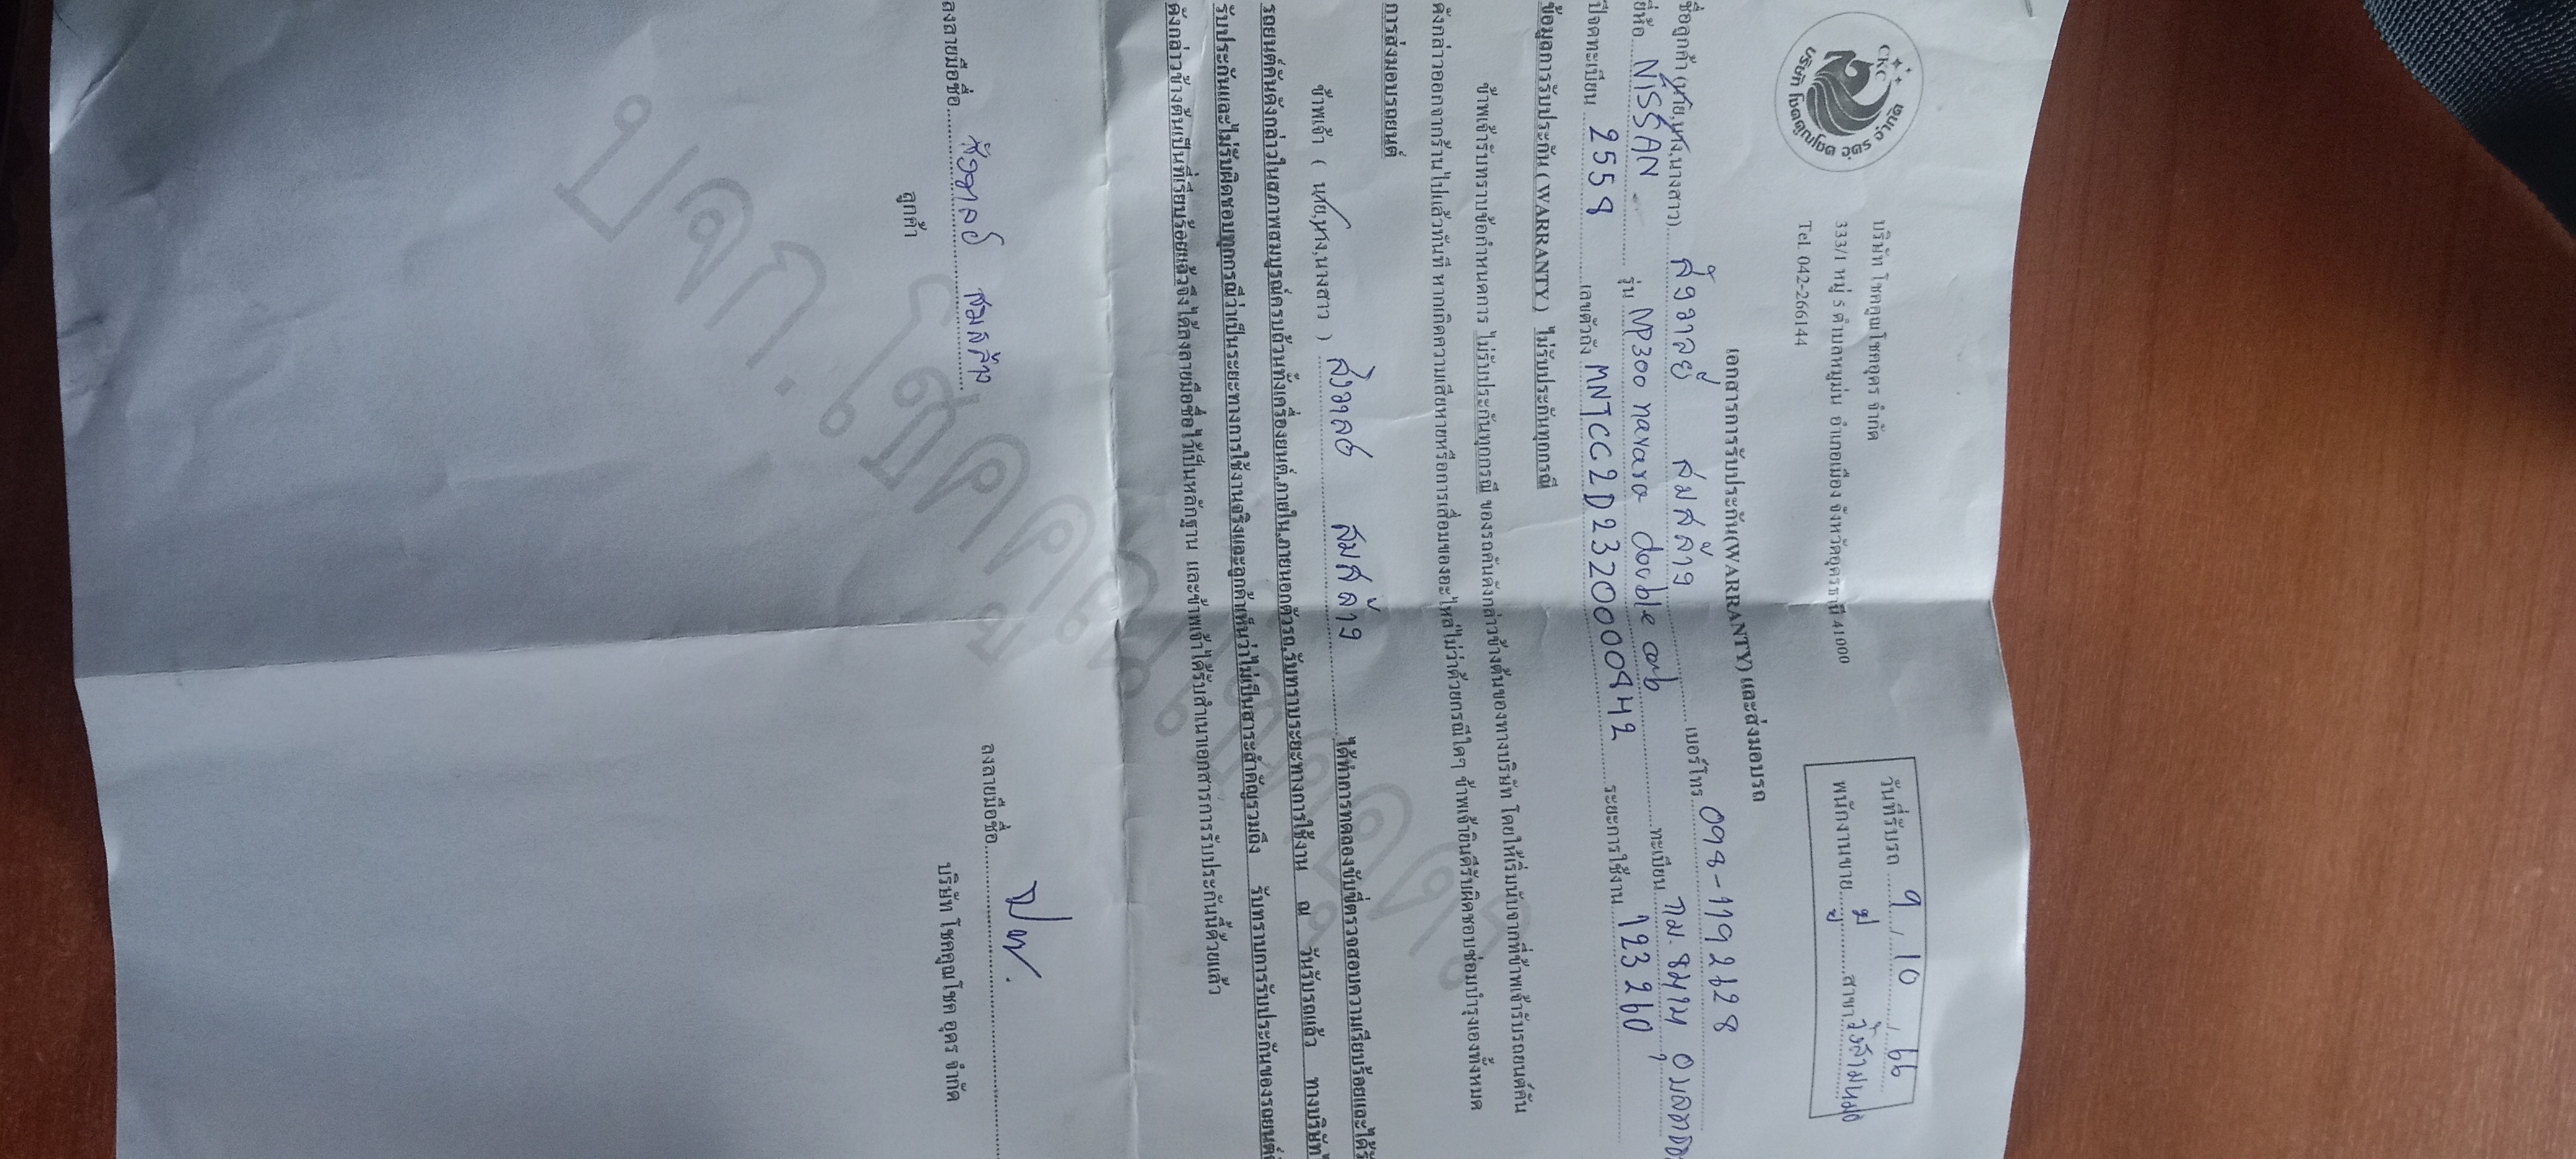 CKC
บริษัท โชคคูณโชค อุดร จำกัด
บริษัท โชคคูณโชคอุดร จำกัด
333/1 หมู่ 5 ตำบลหมูม่น อำเภอเมือง จังหวัดอุดรธานี 41000
Tel. 042-266144
วันที่รับรถ 9 / 10 / 66
พนักงานขาย สาขา วังสามหมอ
เอกสารการรับประกัน(WARRANTY) และส่งมอบรถ
ชื่อลูกค้า (นาย,นาง,นางสาว) สังวาลย์ สมสล้าง เบอร์โทร 098-1192628
ยี่ห้อ NISSAN รุ่น NP300 navara double cab ทะเบียน
ปีจดทะเบียน 2558 เลขตัวถัง MNTCC2D23Z0000442 ระยะการใช้งาน 123260
ข้อมูลการรับประกัน ( WARRANTY ) ไม่รับประกันทุกกรณี
ข้าพเจ้ารับทราบข้อกำหนดการ ไม่รับประกันทุกกรณี ของรถคันดังกล่าวข้างต้นของทางบริษัท โดยให้เริ่มนับจากที่ข้าพเจ้ารับรถยนต์คัน
ดังกล่าวออกจากร้านไปแล้วทันที หากเกิดความเสียหายหรือการเสื่อมของอะไหล่ไม่ว่าด้วยกรณีใดๆ ข้าพเจ้ายินดีรับผิดชอบซ่อมบำรุงเองทั้งหมด
การส่งมอบรถยนต์
ข้าพเจ้า ( นาย,นาง,นางสาว ) สังวาลย์ สมสล้าง ได้ทำการทดลองขับขี่ตรวจสอบความเรียบร้อยและได้
รถยนต์คันดังกล่าวในสภาพสมบูรณ์ครบถ้วนทั้งเครื่องยนต์,ภายใน,ภายนอกตัวรถ,รับทราบระยะทางการใช้งาน ณ วันรับรถแล้ว ทางบริษัท
รับประกันและไม่รับผิดชอบทุกกรณีว่าเป็นระยะทางการใช้งานจริงและลูกค้าเห็นว่าไม่เป็นสาระสำคัญรวมถึง รับทราบการรับประกันของรถยนต์
ดังกล่าวข้างต้นเป็นที่เรียบร้อยแล้วจึงได้ลงลายมือชื่อไว้เป็นหลักฐาน และข้าพเจ้าได้รับสำเนาเอกสารการรับประกันนี้ด้วยแล้ว
บจก.โชคคูณโชคอุดร
ลงลายมือชื่อ สังวาลย์ สมสล้าง ลงลายมือชื่อ
ลูกค้า บริษัท โชคคูณโชค อุดร จำกัด